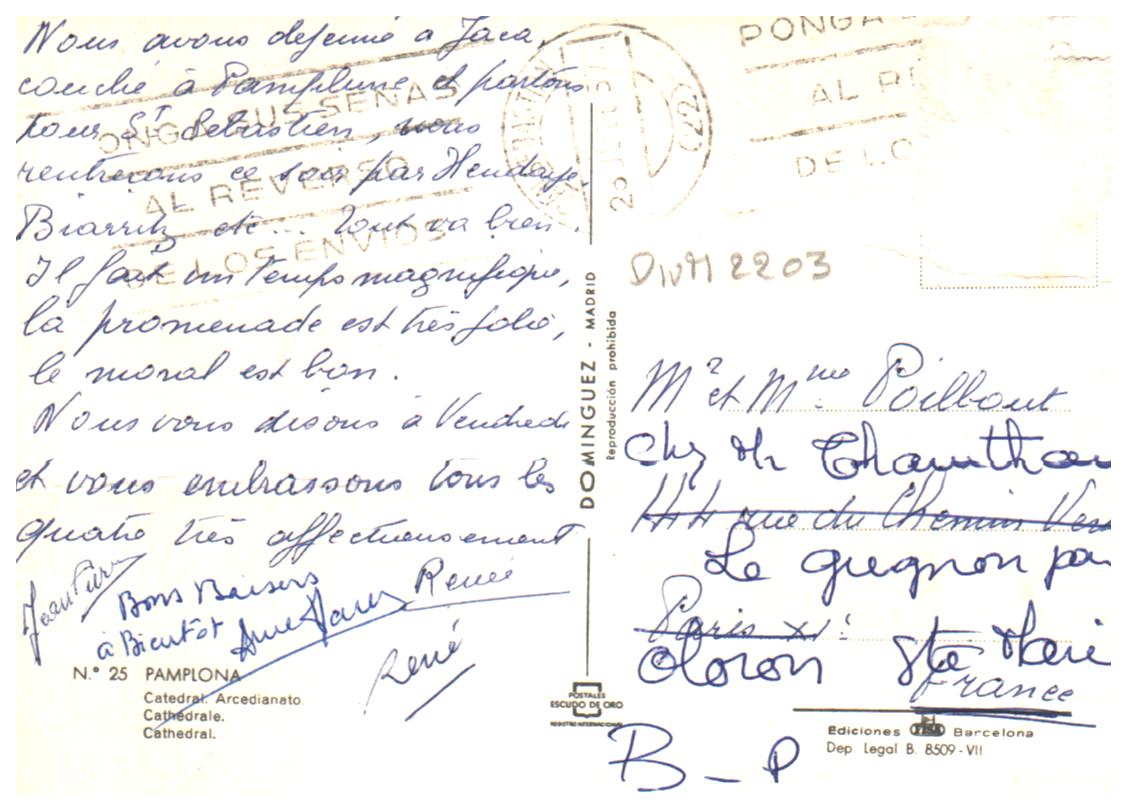 Nous avons dejeuné à Jaca,
couché à Pamplune et partons
pour St Sebastien, nous
rentrerons ce soir par Hendaye,
Biarritz etc... Tout va bien.
Il fait un temps magnifique,
la promenade est très jolie,
le moral est bon.
Nous vous disons à Vendredi
et vous embrassons tous les
quatre très affectueusement
Renée
Bons Baisers
à Bientôt
René
N.º 25 PAMPLONA
Catedral. Arcedianato
Cathédrale.
Cathedral.
PONGA SUS SEÑAS
AL REVERSO
DE LOS ENVIOS
PONGA
AL RE
DE LO
DIVM 2203
DOMINGUEZ - MADRID
Reproducción prohibida
POSTALES
ESCUDO DE ORO
REGISTRO INTERNACIONAL
Mr et Mme Poillout
Chez Mr
44 rue du Chemin Ver
Le gregnon par
Paris XIe
Oloron Ste Marie
France
B - P
Ediciones Barcelona
Dep. Legal B. 8509 - VII